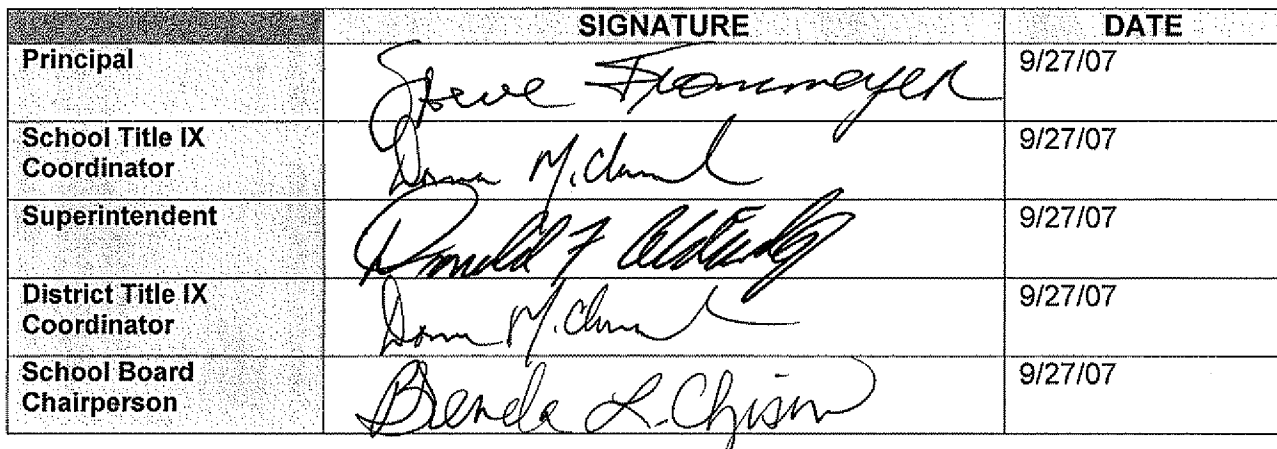 SIGNATURE DATE
Principal Steve Frommeyer 9/27/07
School Title IX
Coordinator Donna M. 9/27/07
Superintendent Ronald F 9/27/07
District Title IX
Coordinator Donna M. 9/27/07
School Board
Chairperson Brenda L. 9/27/07